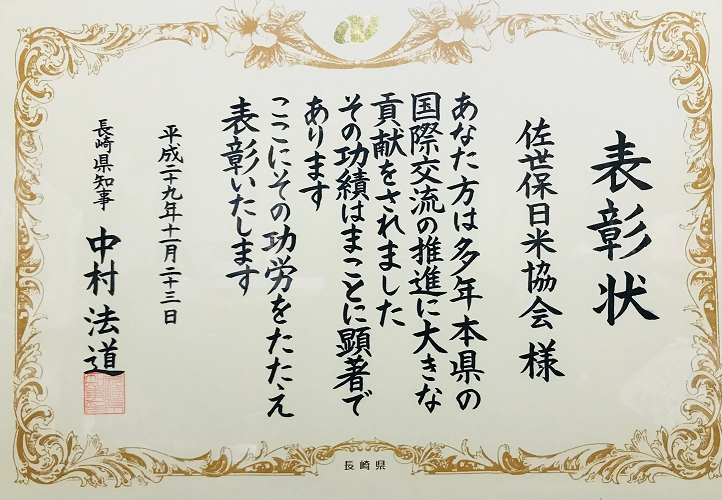 表彰状
佐世保日米協会 様
あなた方は多年本県の
国際交流の推進に大きな
貢献をされました
その功績はまことに顕著で
あります
ここにその功労をたたえ
表彰いたします
平成二十九年十一月二十三日
長崎県知事 中村法道
長崎県